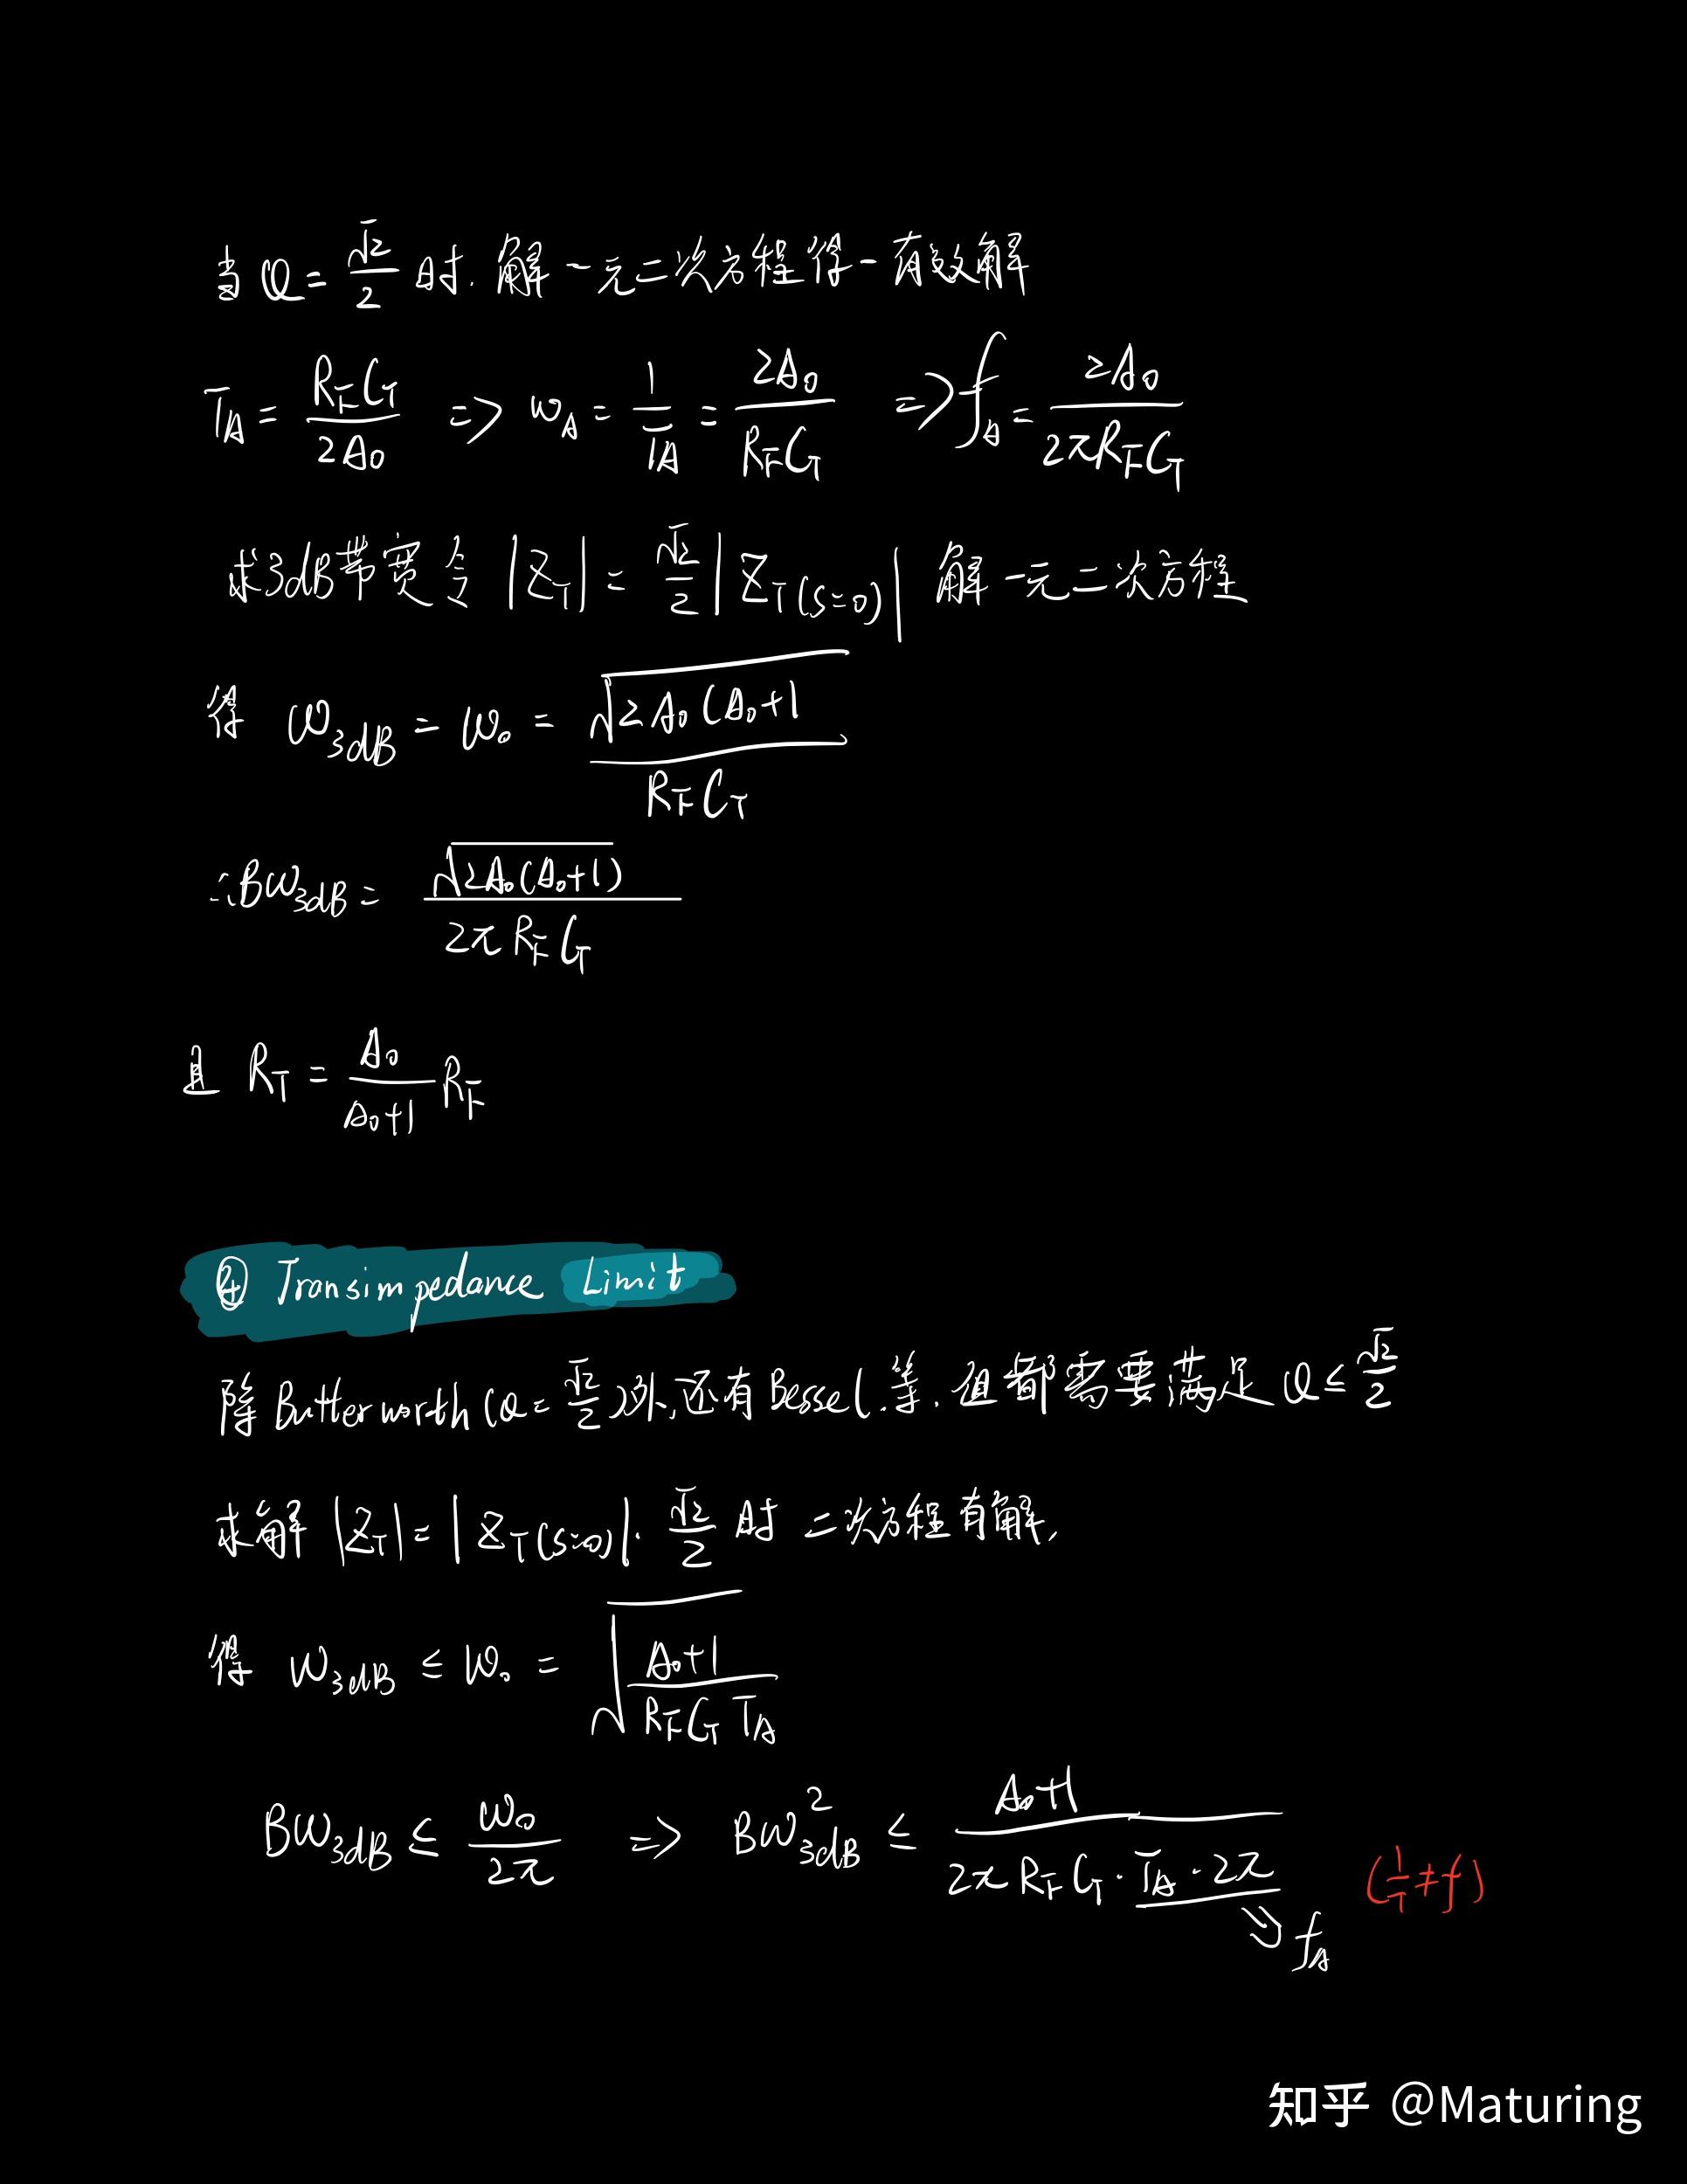 当 Q = √2/2 时. 解一元二次方程得一有效解
T_A = R_F C_T / 2A₀ => ω_A = 1/T_A = 2A₀ / R_F C_T => f_A = 2A₀ / 2πR_F C_T
求3dB带宽令 |Z_T| = √2/2 |Z_T(s=0)| 解一元二次方程
得 ω_3dB = ω₀ = √(2A₀(A₀+1 / R_F C_T
∴BW_3dB = √(2A₀(A₀+1)) / 2π R_F C_T
且 R_T = A₀ / A₀+1 R_F
④ Transimpedance Limit
除Butterworth (Q = √2/2)外,还有Bessel.等. 但都需要满足 Q ≤ √2/2
求解 |Z_T| = |Z_T(s=0)|. √2/2 时 二次方程有解,
得 ω_3dB ≤ ω₀ = √(A₀+1 / R_F C_T T_A)
BW_3dB ≤ ω₀ / 2π => BW²_3dB ≤ A₀+1 / 2π R_F C_T · T_A · 2π (1/T ≠ f)
⇒ f_A
知乎 @Maturing